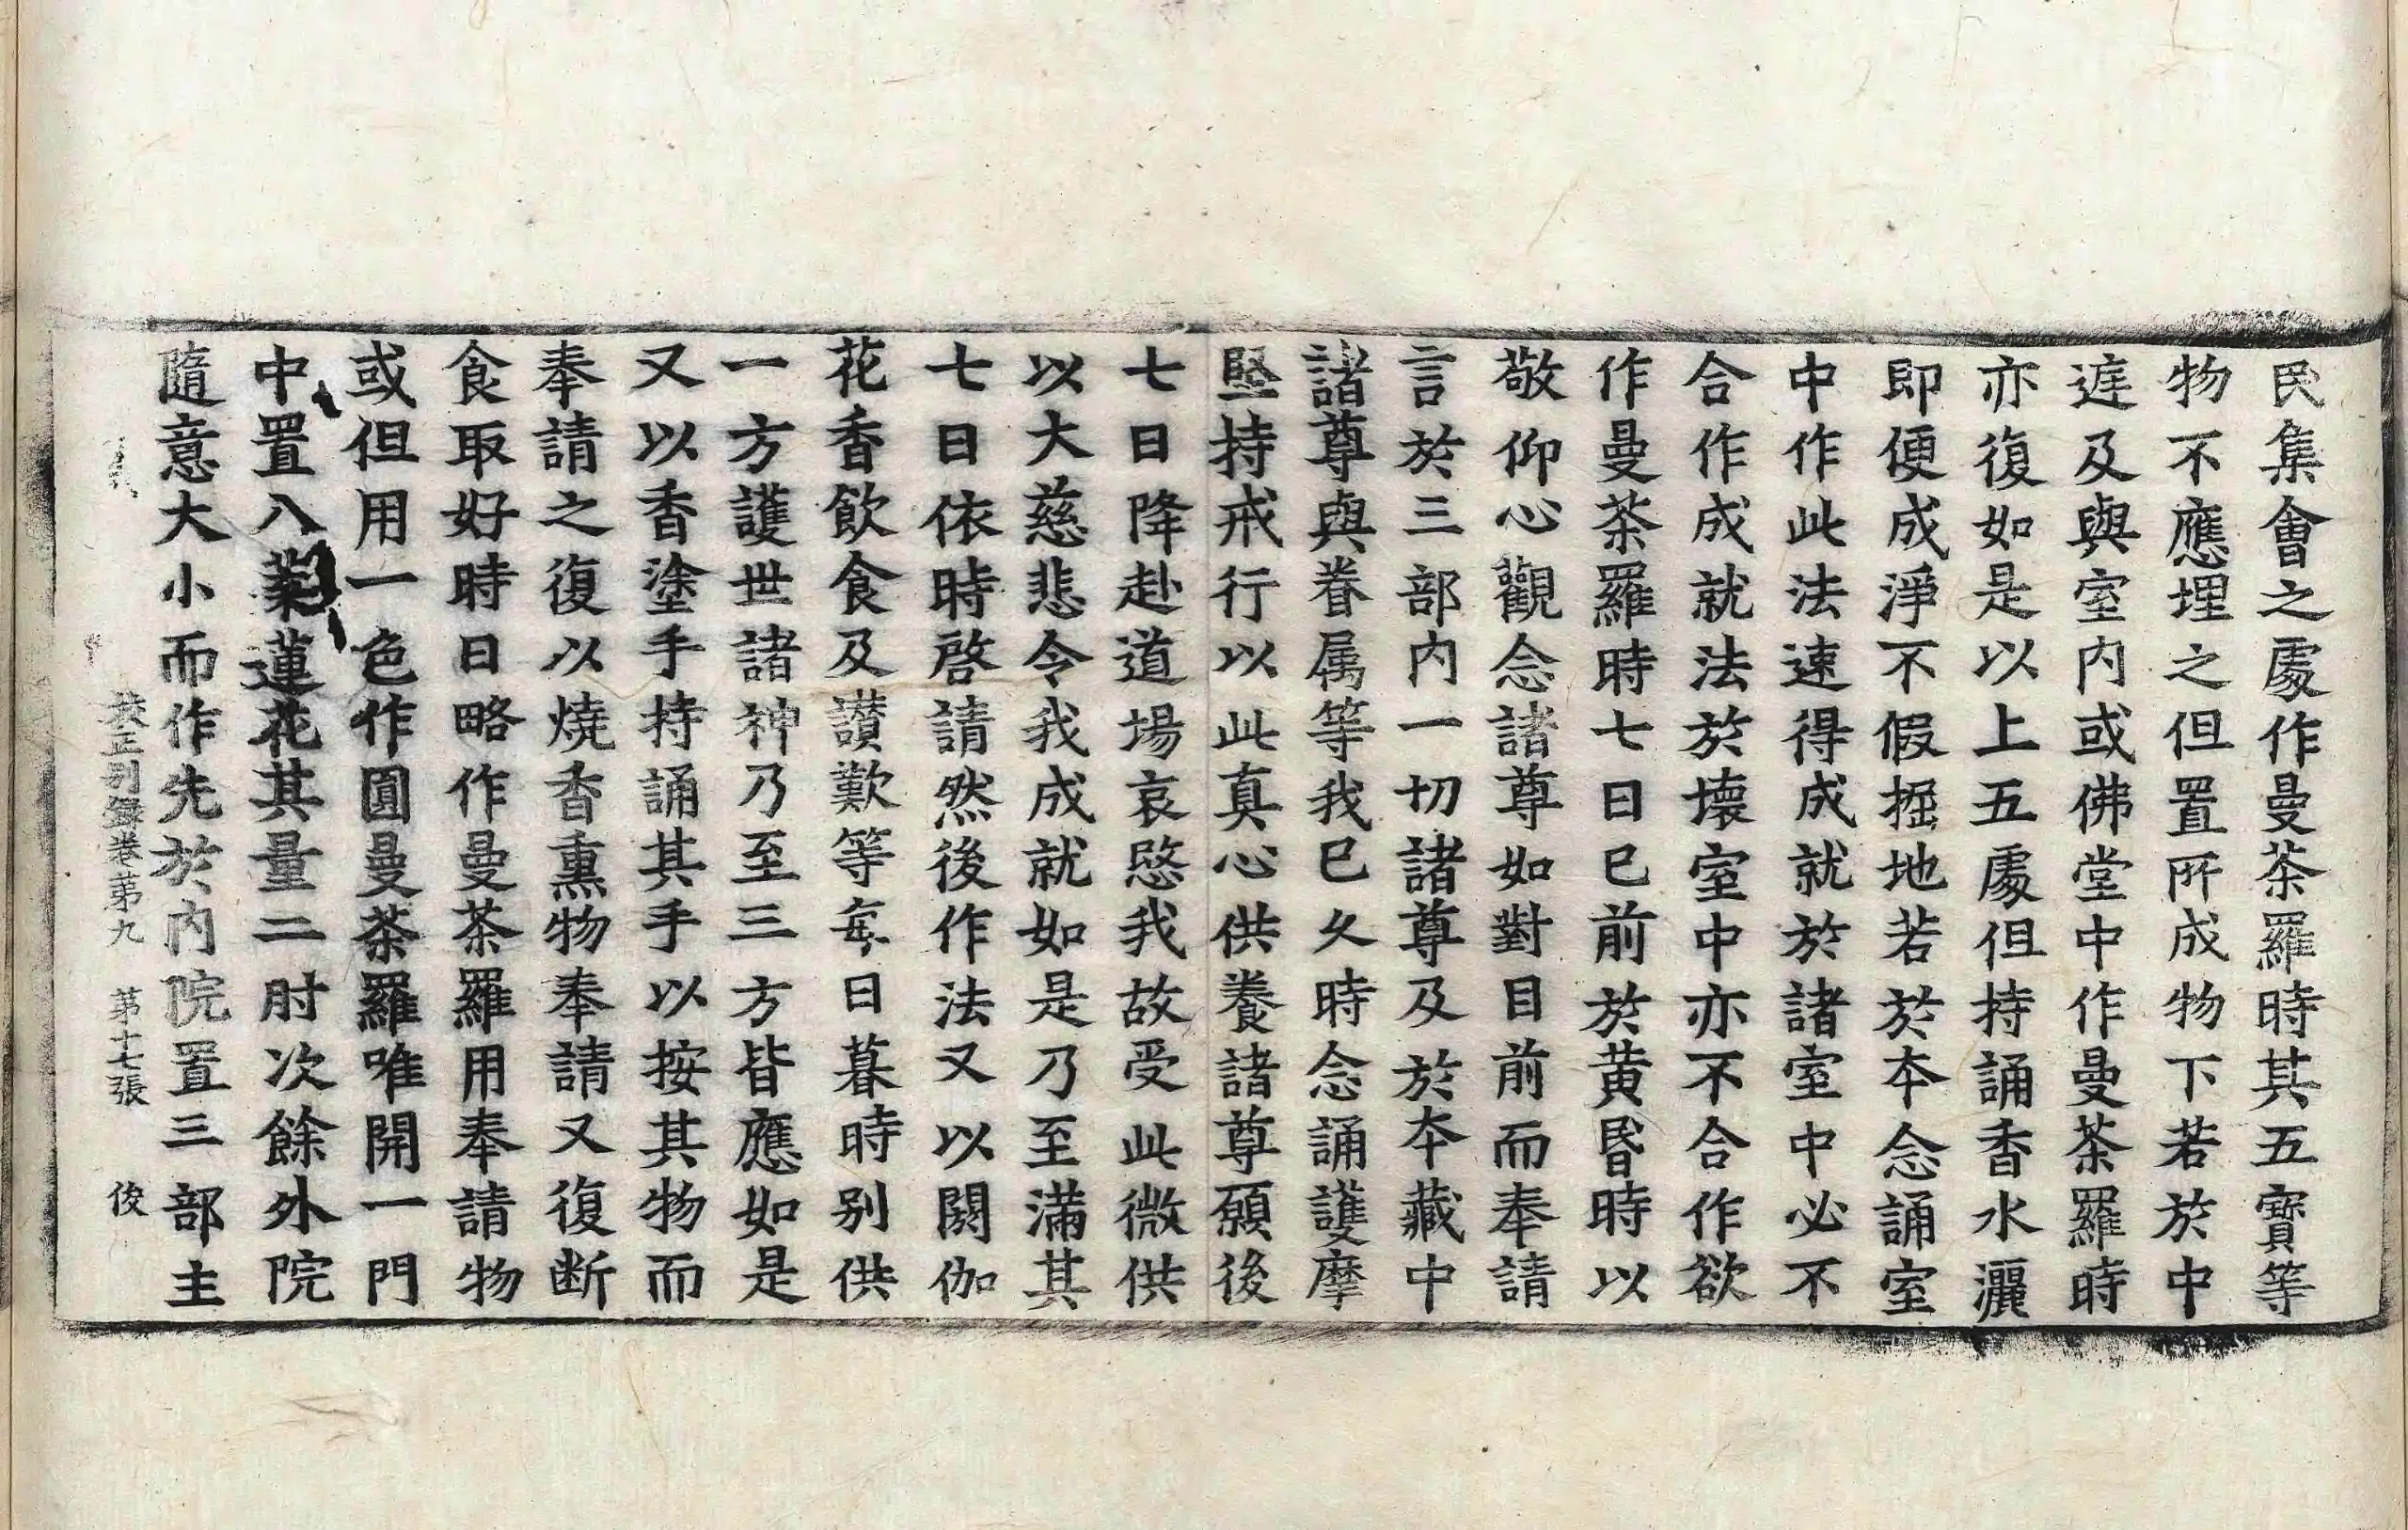 民集會之處作曼荼羅時其五寶等
物不應埋之但置所成物下若於中
遅及與室内或佛堂中作曼荼羅時
亦復如是以上五處但持誦香水灑
即便成淨不假掘地若於本念誦室
中作此法速得成就於諸室中必不
合作成就法於壞室中亦不合作欲
作曼荼羅時七日已前於黄昬時以
敬仰心觀念諸尊如對目前而奉請
言於三部内一切諸尊及於本藏中
諸尊與眷属等我已久時念誦護摩
堅持戒行以此真心供養諸尊願後
七日降赴道場哀愍我故受此微供
以大慈悲令我成就如是乃至滿其
七日依時啓請然後作法又以閼伽
花香飲食及讃歎等每日暮時别供
一方護世諸神乃至三方皆應如是
又以香塗手持誦其手以按其物而
奉請之復以燒香熏物奉請又復断
食取好時日略作曼荼羅用奉請物
或但用一色作圓曼荼羅唯開一門
中置八葉蓮花其量二肘次餘外院
隨意大小而作先於内院置三部主
校正别錄卷苐九 苐十七張 俊